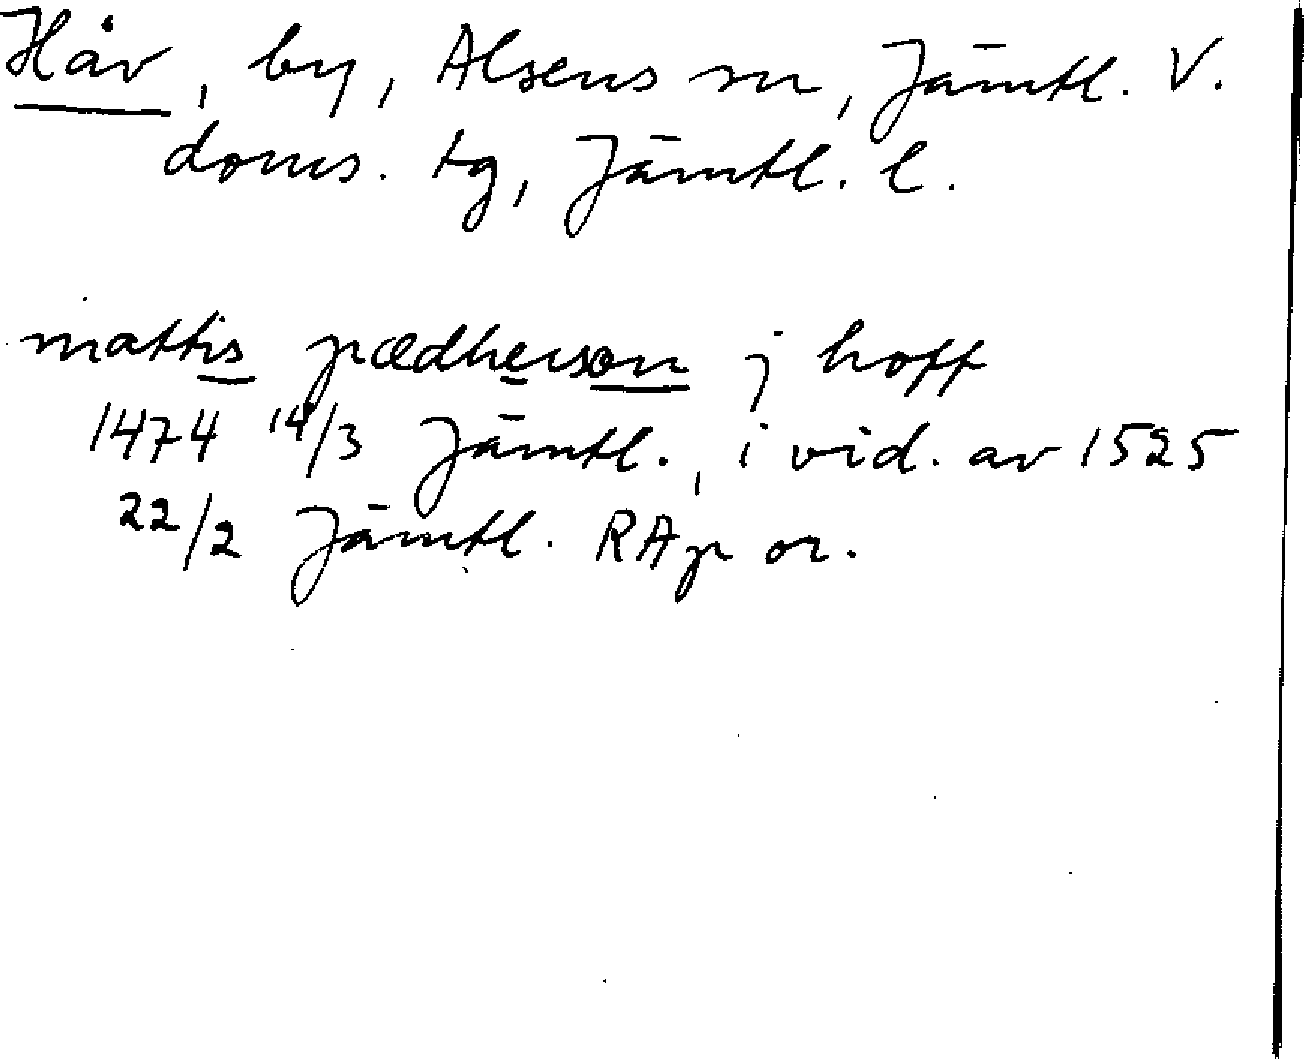 Håv, by, Alsens sn, Jämtl. V.
doms. tg, Jämtl. l.
mattis pædherson j hoff
1474 14/3 Jämtl., i vid. av 1525
22/2 Jämtl. RAp or.